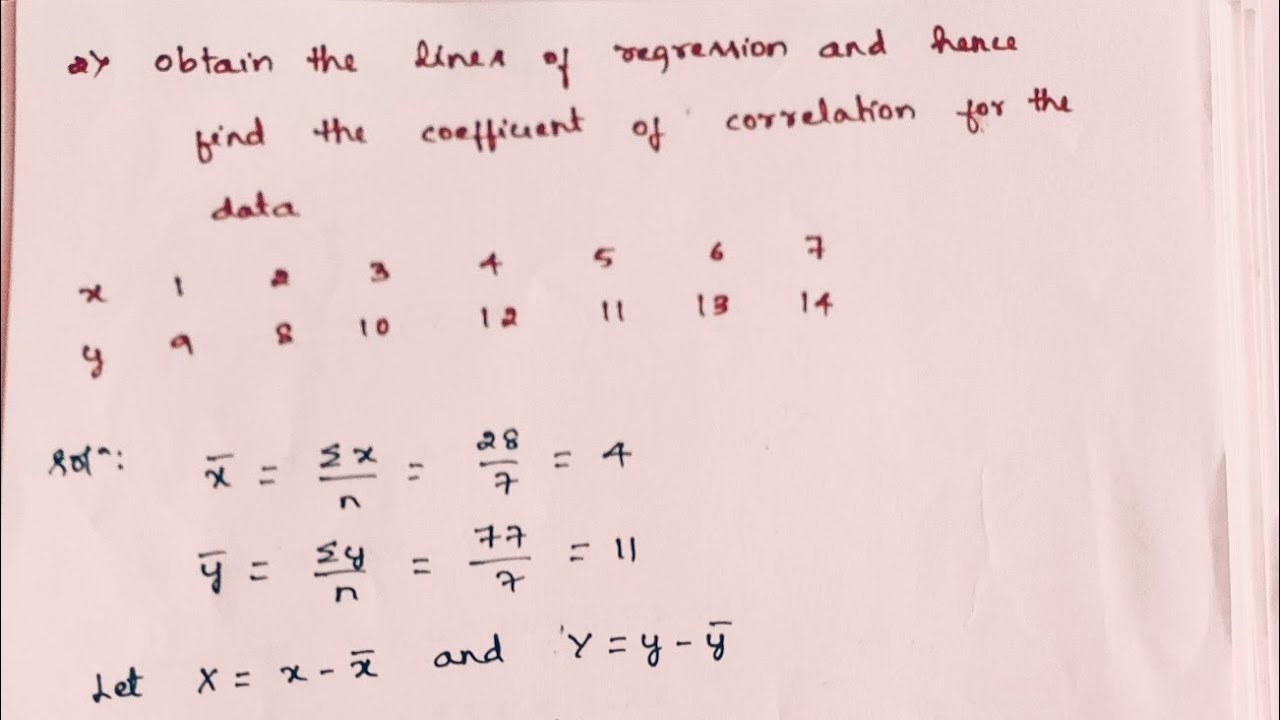 2) obtain the lines of regression and hence
find the coefficient of correlation for the
data
x 1 2 3 4 5 6 7
y 9 8 10 12 11 13 14
Solⁿ: x̄ = Σx/n = 28/7 = 4
ȳ = Σy/n = 77/7 = 11
Let X = x - x̄ and Y = y - ȳ